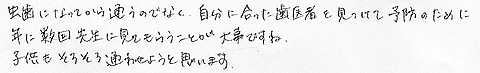 虫歯になってから通うのでなく、自分に合った歯医者を見つけて予防のために
年に数回先生に見てもらうことが大事ですね。
子供もそろそろ通わせようと思います。